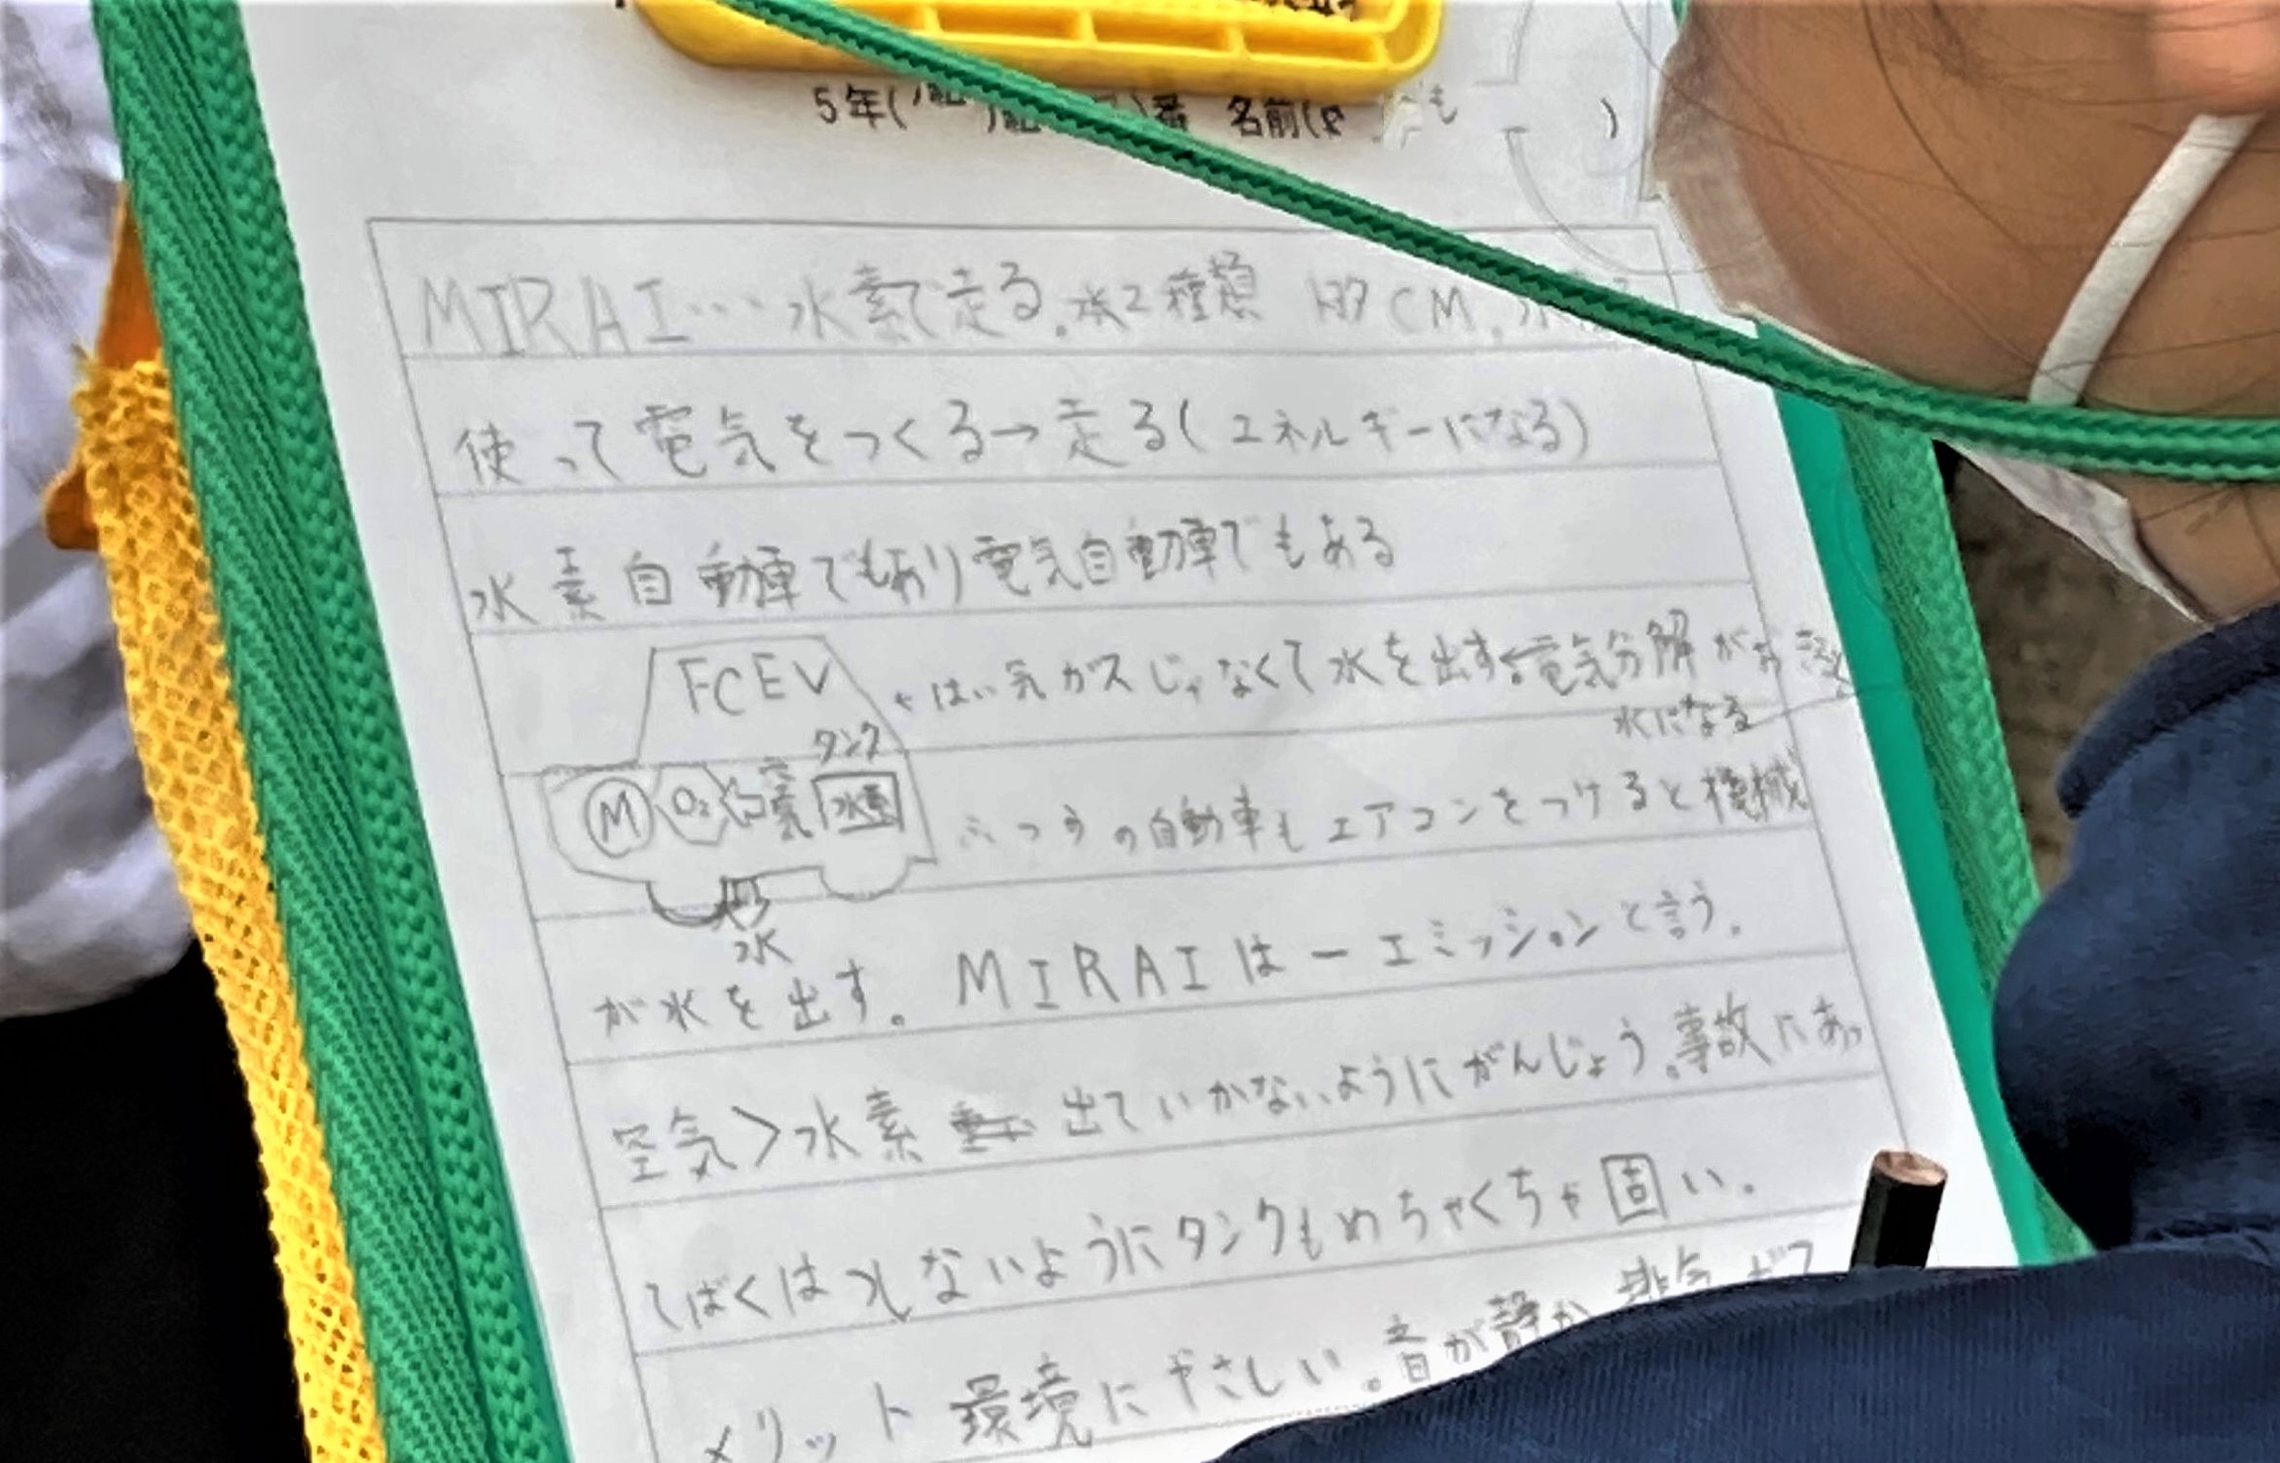 5年( 組 )番 名前( も )
MIRAI…水素で走る。 2種類 CM.
使って電気をつくる→走る(エネルギーになる)
水素自動車でもあり電気自動車でもある
FCEV ←はい気ガスじゃなくて水を出す←電気分解がおきると
水になる
タンク
M O2 空気 水素
ふつうの自動車もエアコンをつけると機械
水
が水を出す。MIRAIは一エミッションと言う。
空気>水素 出ていかないようにがんじょう。事故にあっ
てばくはつしないようにタンクもめちゃくちゃ固い.
メリット 環境にやさしい。音が静か 排気